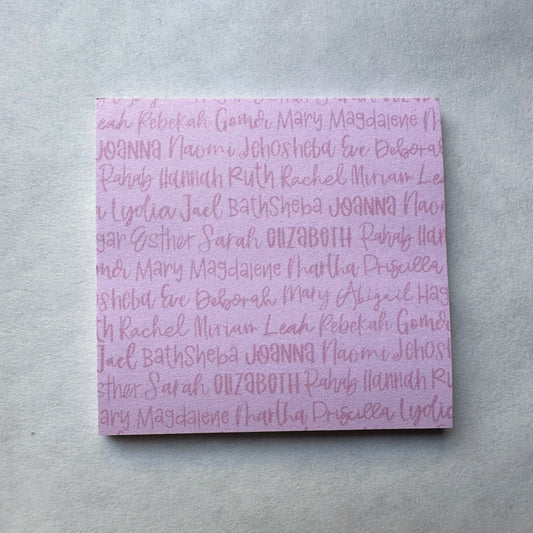 eah Rebekah Gomer Mary Magdalene
JOANNA Naomi Jehosheba Eve Deborah
Rahab Hannah Ruth Rachel Miriam Lea
Lydia Jael BATHSHEBA JOANNA Naomi
gar Esther Sarah ELIZABETH Rahab Hann
mer Mary Magdalene Martha Priscilla
osheba Eve Deborah Mary Abigail Hag
th Rachel Miriam Leah Rebekah Gomer
Jael BATHSHEBA JOANNA Naomi Jehosh
sther Sarah ELIZABETH Rahab Hannah Ru
ary Magdalene Martha Priscilla Lydia